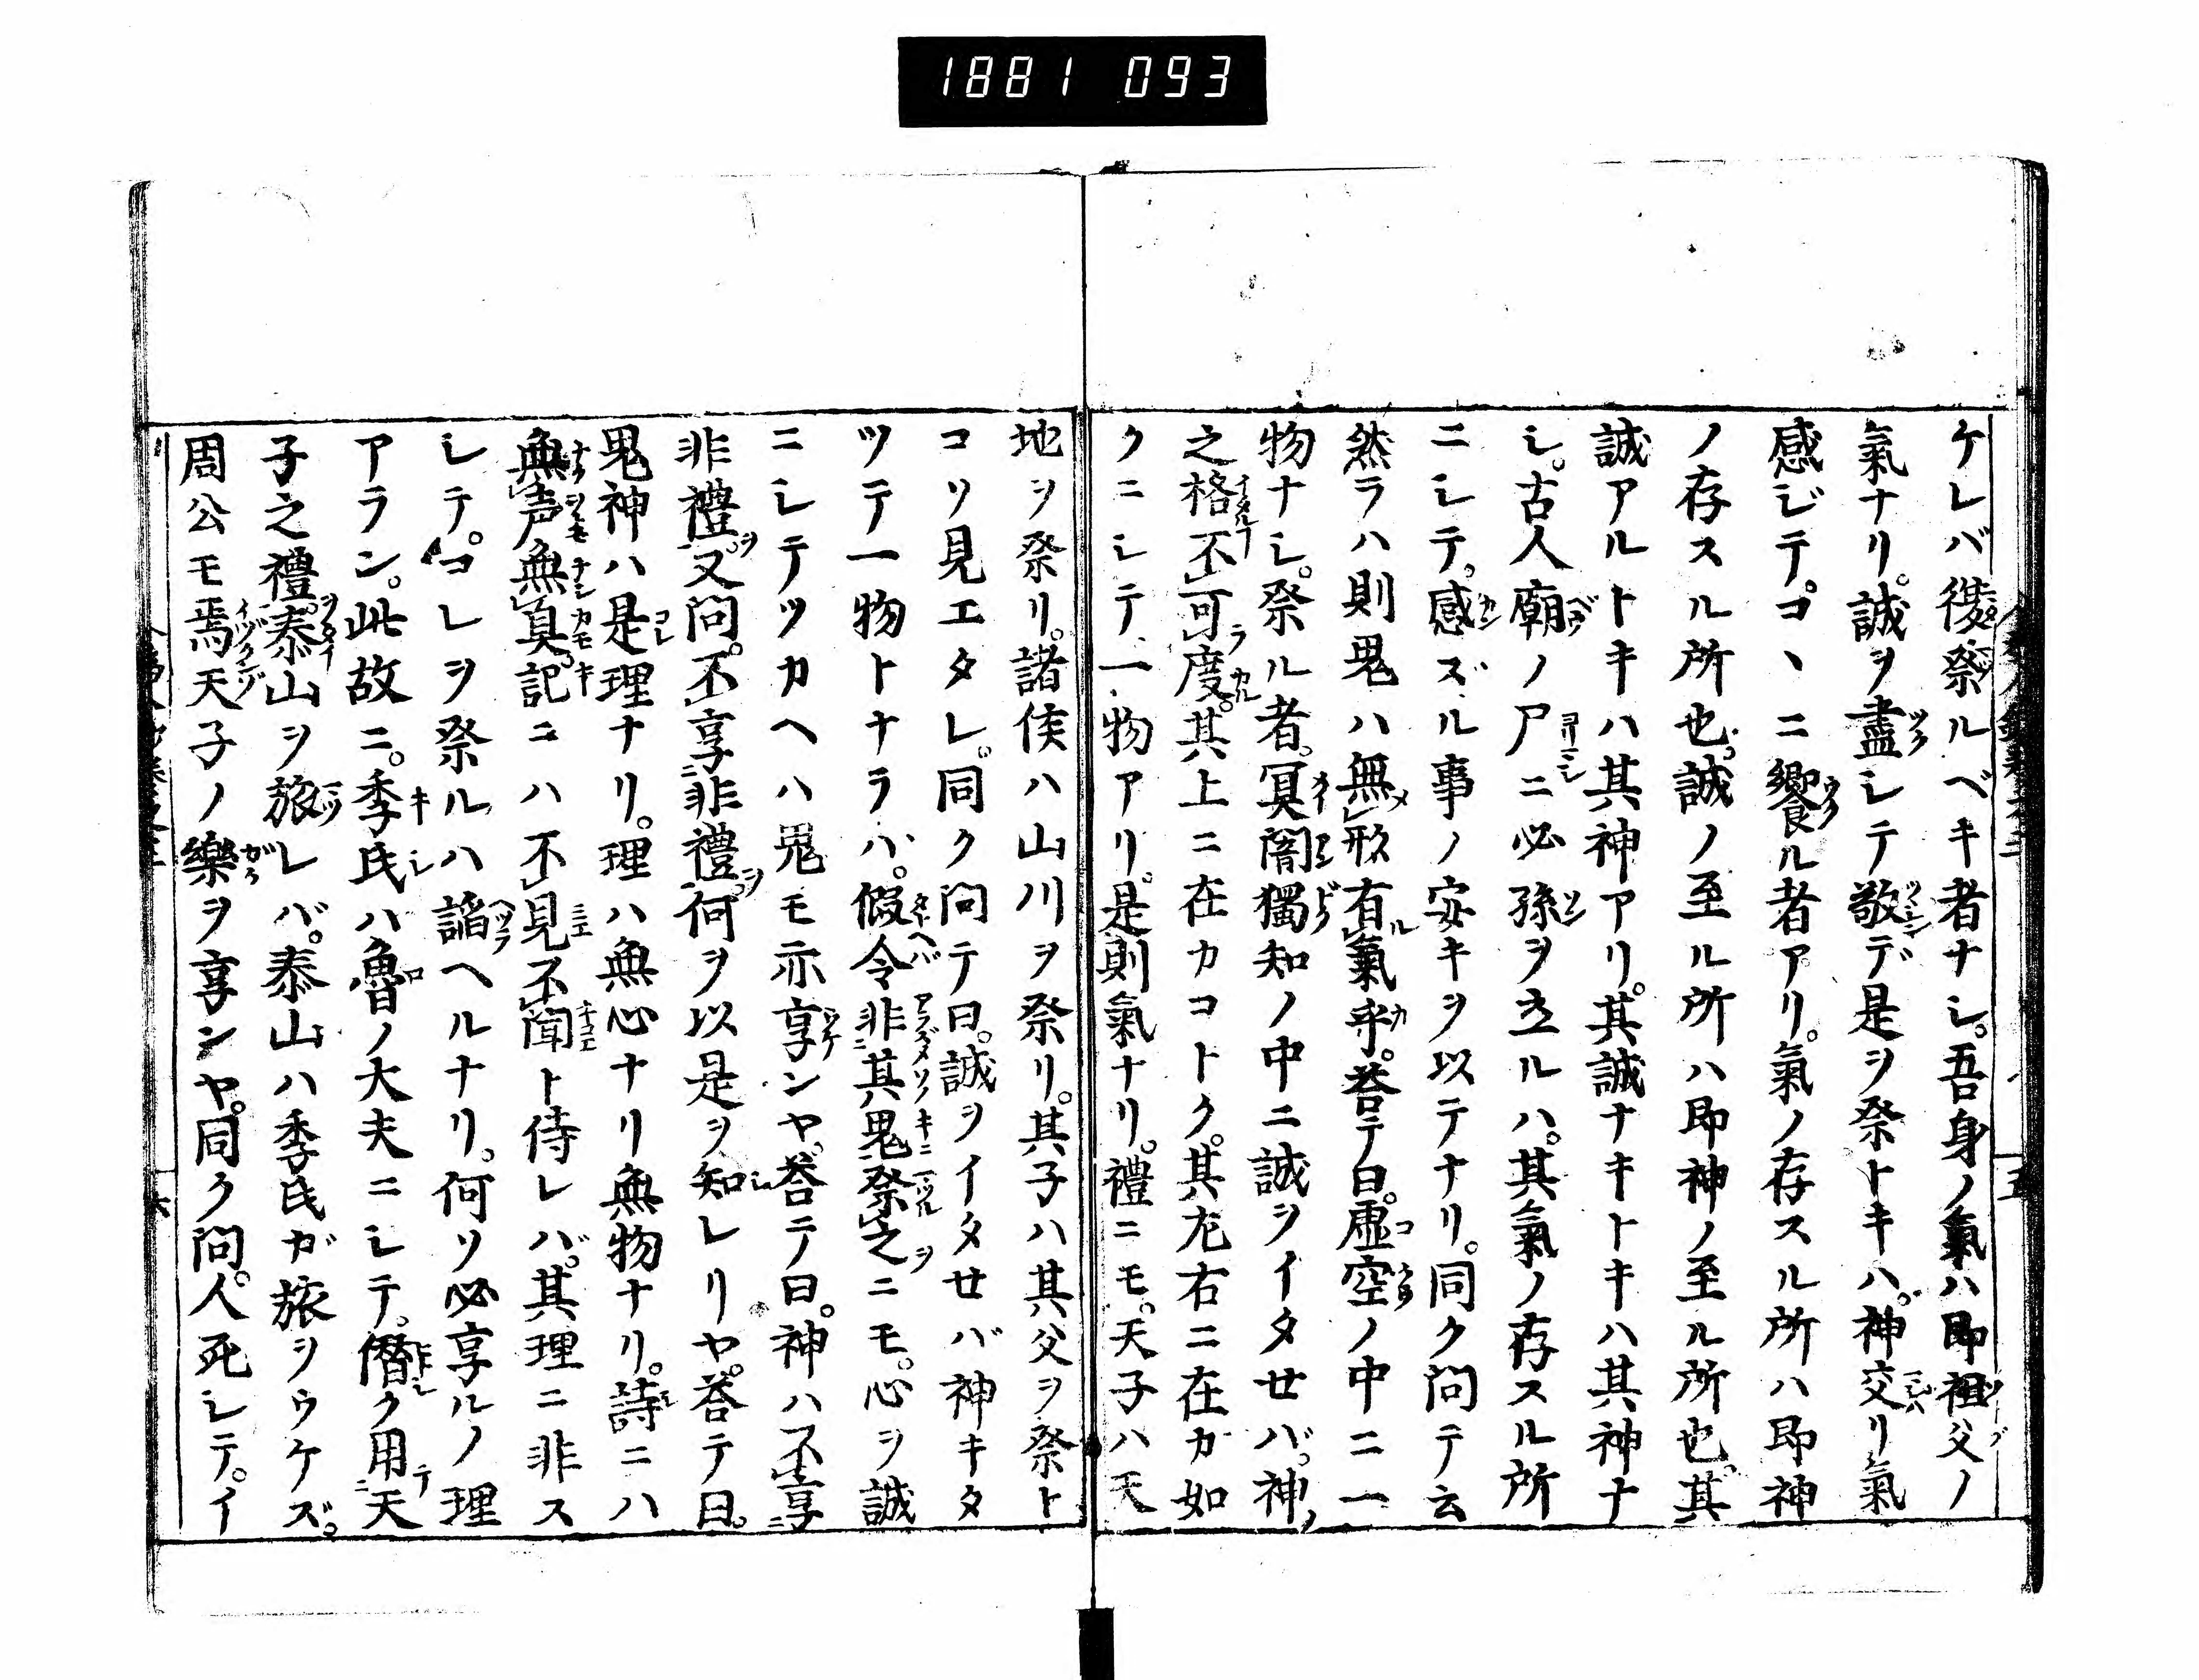 1881 093
ケレバ復祭ルベキ者ナシ。吾身ノ氣ハ即祖父ノ
氣ナリ。誠ヲ盡シテ敬デ是ヲ祭トキハ。神交リ氣
感ジテ。コヽニ饗ル者アリ。氣ノ存スル所ハ即神
ノ存スル所也。誠ノ至ル所ハ即神ノ至ル所也。其
誠アルトキハ其神アリ。其誠ナキトキハ其神ナ
シ。古人廟ノ尸ニ必孫ヲ立ルハ。其氣ノ存スル所
ニシテ。感ズル事ノ安キヲ以テナリ。同ク問テ云
然ラハ則鬼ハ無形有氣乎。答テ曰。虚空ノ中ニ一
物ナシ。祭ル者。冥闇獨知ノ中ニ誠ヲイタセバ。神
之格不可度。其上ニ在カコトク。其左右ニ在カ如
クニシテ一物アリ。是則氣ナリ。禮ニモ。天子ハ天
地ヲ祭リ。諸侯ハ山川ヲ祭リ。其子ハ其父ヲ祭ト
コソ見エタレ。同ク問テ曰。誠ヲイタせバ神キタ
ツテ一物トナラハ。假令非其鬼祭之ニモ。心ヲ誠
ニシテツカヘハ鬼モ亦享ンヤ。答テ曰。神ハ不享
非禮。又問。不享非禮。何ヲ以是ヲ知レリヤ。答テ曰。
鬼神ハ是理ナリ。理ハ無心ナリ無物ナリ。詩ニハ
無声無臭。記ニハ不見不聞ト侍レバ。其理ニ非ス
シテ。コレヲ祭ルハ諂ヘルナリ。何ソ必享ルノ理
アラン。此故ニ。季氏ハ魯ノ大夫ニシテ。僭ク用天
子之禮。泰山ヲ旅レバ。泰山ハ季氏ガ旅ヲウケズ。
周公モ焉天子ノ樂ヲ享ンヤ。同ク問。人死シテ。イ
五
六